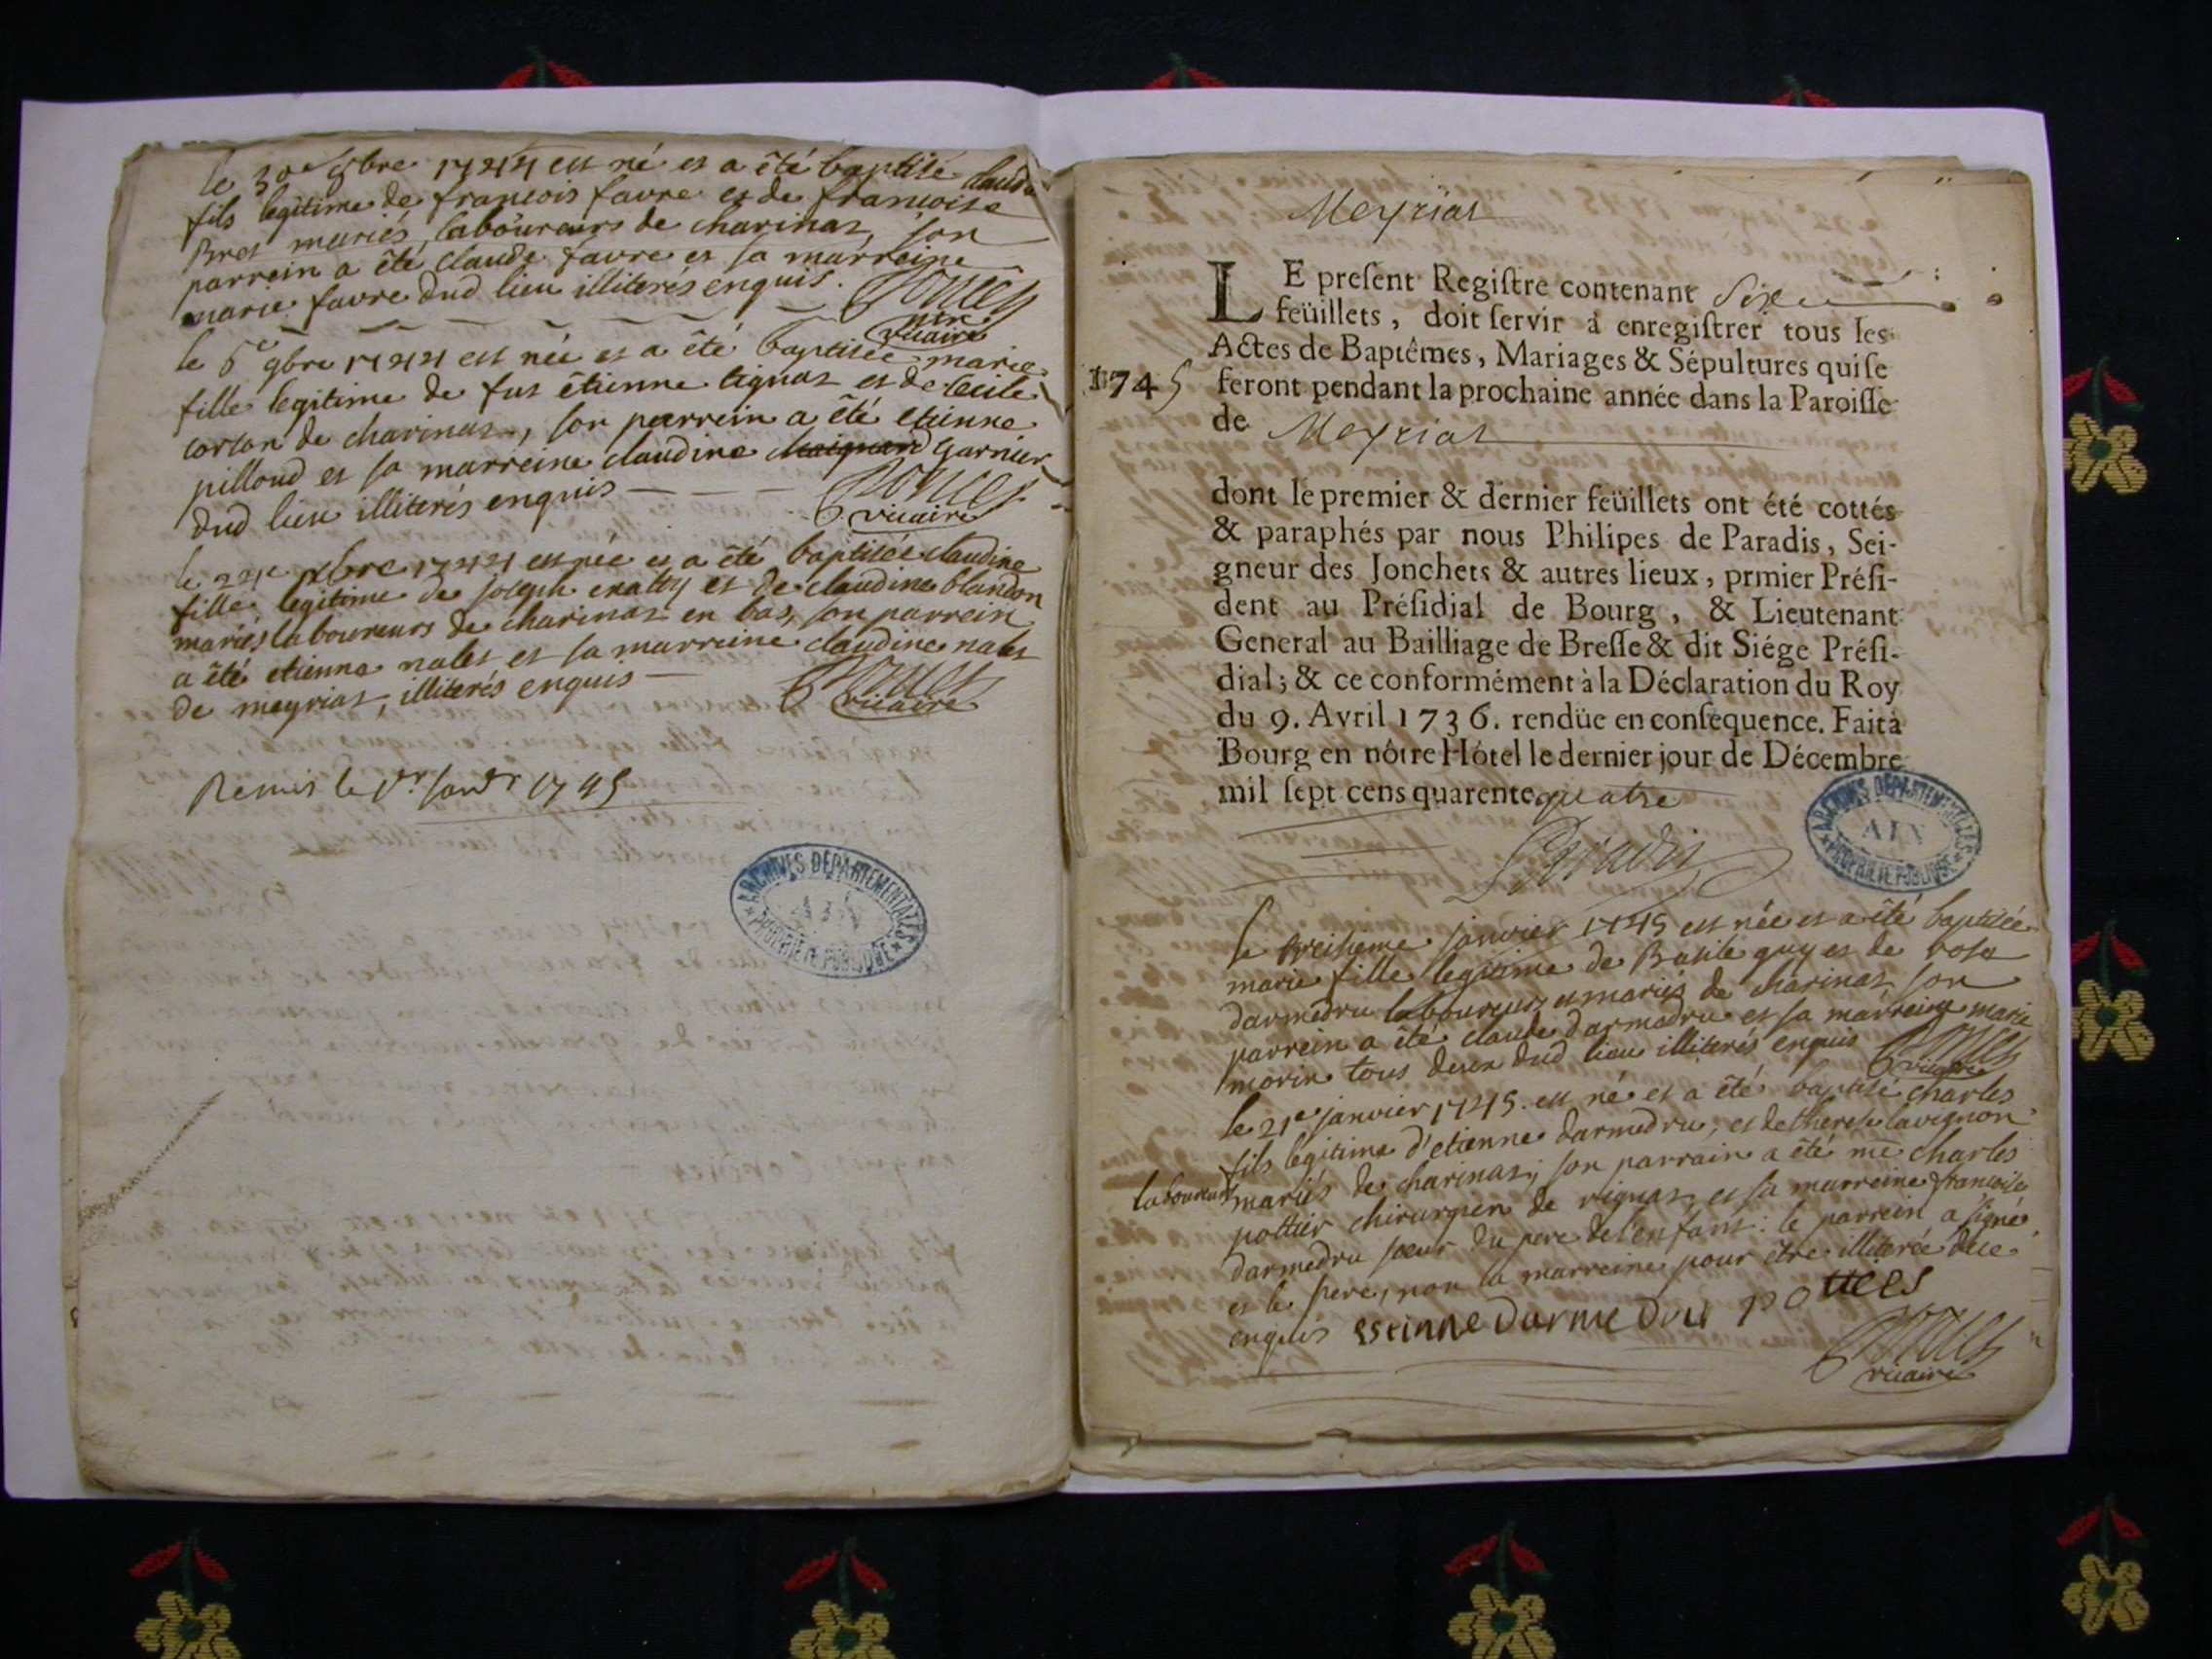 le 30e 8bre 1744 est né et a été baptisé claude
fils legitime de francois favre et de francoise
Bret mariés, laboureurs de charinas, son
parrein a été claude favre et sa marreine
marie favre dud lieu illiterés enquis.
vicaire
le 6e 9bre 1744 est née et a été baptisée marie
fille legitime de fut étienne tignat et de
de charinas, son parrein a été etienne
pilloud et sa marreine claudine garnier
dud lieu illiterés enquis
vicaire
le 24e xbre 1744 est née et a été baptisée claudine
fille legitime de joseph et de claudine blandon
mariés laboureurs de charinas en bas, son parrein
a été etienne nalet et sa marreine claudine nalet
de meyriat, illiterés enquis
vicaire
Remis le 1er janvr 1745
ARCHIVES DEPARTEMENTALES
AIN
PROPRIETE PUBLIQUE
Meyriat
LE present Registre contenant Six
feüillets, doit servir à enregistrer tous les
Actes de Baptêmes, Mariages & Sépultures qui se
1745 feront pendant la prochaine année dans la Paroisse
de Meyriat
dont le premier & dernier feüillets ont été cottés
& paraphés par nous Philipes de Paradis, Sei-
gneur des Jonchets & autres lieux, prmier Prési-
dent au Présidial de Bourg, & Lieutenant
General au Bailliage de Bresse & dit Siége Prési-
dial; & ce conformément à la Déclaration du Roy
du 9. Avril 1736. rendüe en consequence. Fait à
Bourg en nôtre Hôtel le dernier jour de Décembre
mil sept cens quarente quatre
Paradis
ARCHIVES DEPARTEMENTALES
AIN
PROPRIETE PUBLIQUE
le treisieme janvier 1745 est née et a été baptisée
marie fille legitime de Basile guy et de rose
darmedru laboureurs et mariés de charinas, son
parrein a été claude darmedru et sa marreine marie
morin tous deux dud lieu illiterés enquis
vicaire
le 21e janvier 1745. est né et a été baptisé charles
fils legitime d'etienne darmedru, et de therese lavignon
laboureurs mariés de charinas, son parrain a été me charles
pottier chirurgien de rignat, et sa marreine francoise
darmedru soeur du pere de l'enfant: le parrein a signé
et le pere, non la marreine pour etre illiterée de ce
enquis estinne Darme Dru pottier
vicaire